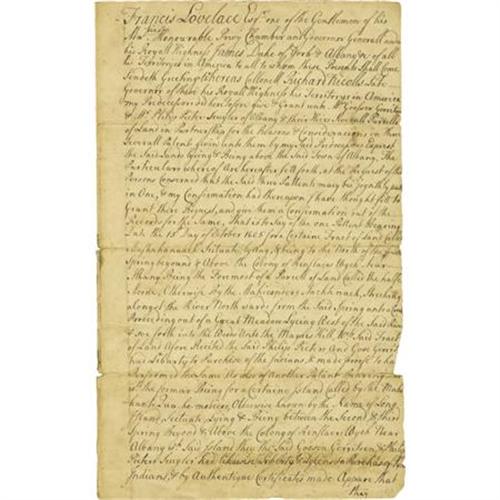 Francis Lovelace Esqr. one of the Gentlemen of his
Ma'ties Honourable Privy Chamber and Governor Generall under
his Royall Highness James Duke of York & Albany &c of all
his Territorys in America to all to whom these Presents shall Come
Sendeth Greeting Whereas Collonell Richard Nicolls Late
Governor of these his Royall Highness his Territorys in America
my Predecessor did heretofore give & Grant unto Mr. Goosen Gerritsen
& Mr. Philip Pieter Scuyler of Albany & their Heirs Severall Parcells
of Land in Partnership for the Reasons & Considerations in their
Severall Patent given unto them by my said Predecessor Exprest
the Said Lands Lying & Being above the said Town of Albany. The
Particulars whereof are hereafter sett forth, at the Request of the
Persons Concerned that the Said their Pattents may be joyntly put
in One, & my Confirmation had thereupon I have thought fitt to
Grant their Request, and give them a Confirmation out of the
Records for the Same, That is to Say of the one Pattent Bearing
Date the 15 Day of October 1665 for a Certaine Tract of Land Called
Scituate, Lying & being to the North of
Spring beyound & Above the Colony of Renslaer Wyck Near
Albany Being the Formost of a Parcell of Land Called the halfe
Moone, Otherwise By the Stretching
alongst the River North wards from the Said Spring unto a
Proceeding out of a Great Meadow Lyeing West of the Said
& soe forth into the Wood Unto the Maquas Hill Wch Said Tract
of Land Afore Recited the Said Philip Pieters and Goosen Gerritsen
had Liberty to Purchase of the Indians & made Proof to ha
Performed the Same As Also of Another Patent Bearing
of the formar Being for a Certaine Island Called by the
Otherwise known by the Name of Long
Island Scituate, Lying & Being between the Second & third
Spring Beyond & Above the Colony of Renslaer Wyck Near
Albany Wch Said Island they the Said Goosen Gerritsen & Philip
Pieters Scuyler had Likewise Liberty to Purchase of the
Indians & by Authentique Certificates made Appeare that
they